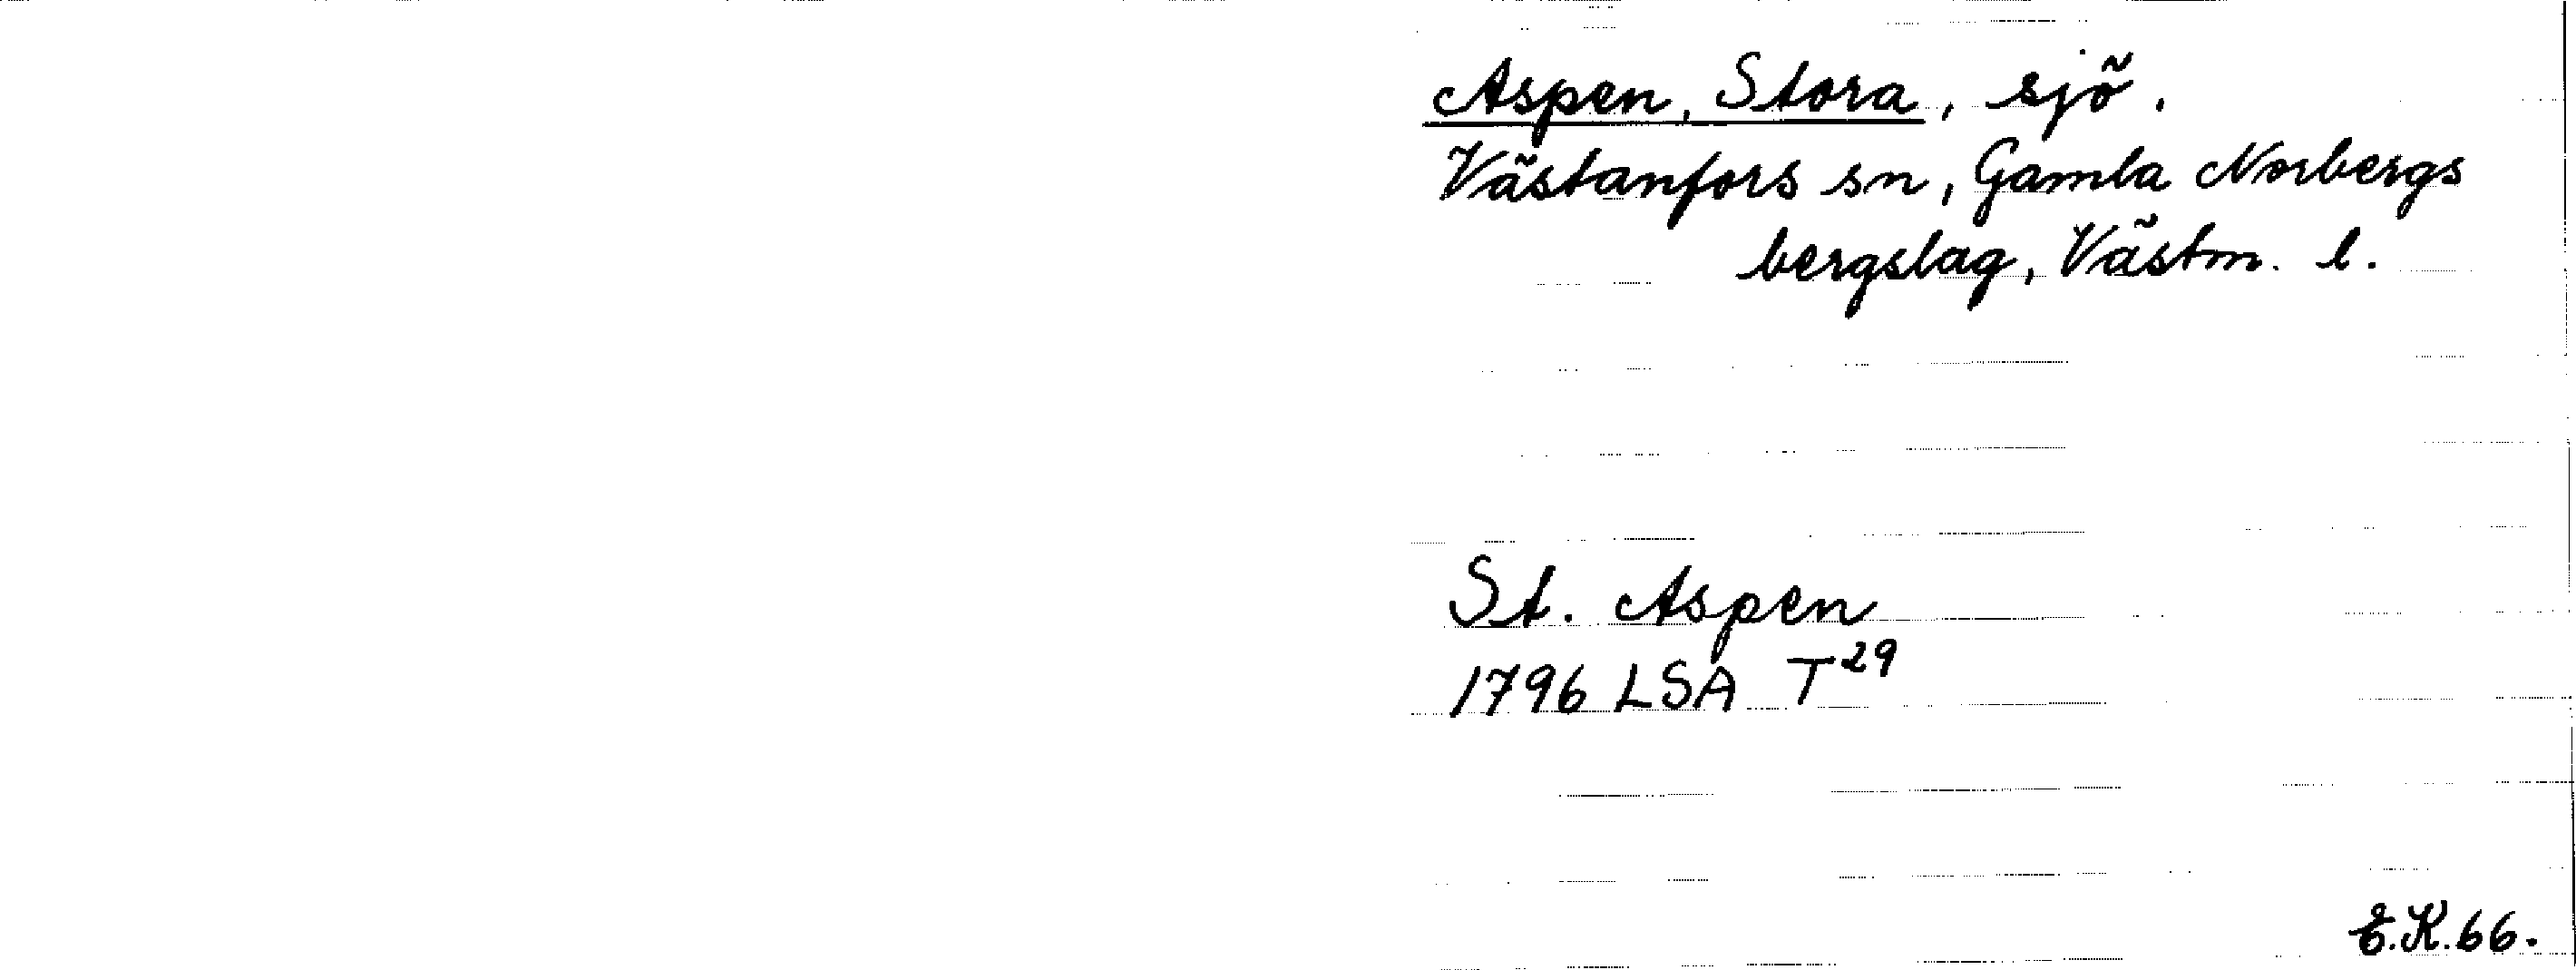 Aspen, Stora, sjö.
Västanfors sn, Gamla Norbergs
bergslag, Västm. l.
St. Aspen
1796 LSA T29
E.K.66.